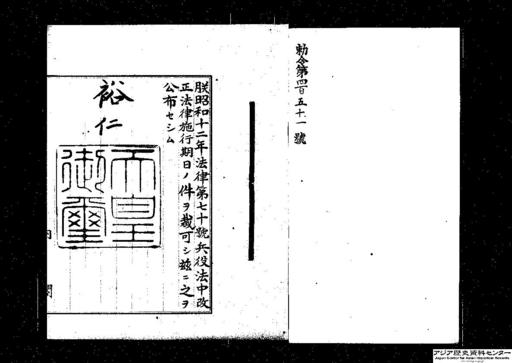 勅令第四百五十一號
朕昭和十二年法律第七十號兵役法中改
正法律施行期日ノ件ヲ裁可シ茲ニ之ヲ
公布セシム
裕仁
天皇
御璽
内閣
アジア歴史資料センター
Japan Center for Asian Historical Records